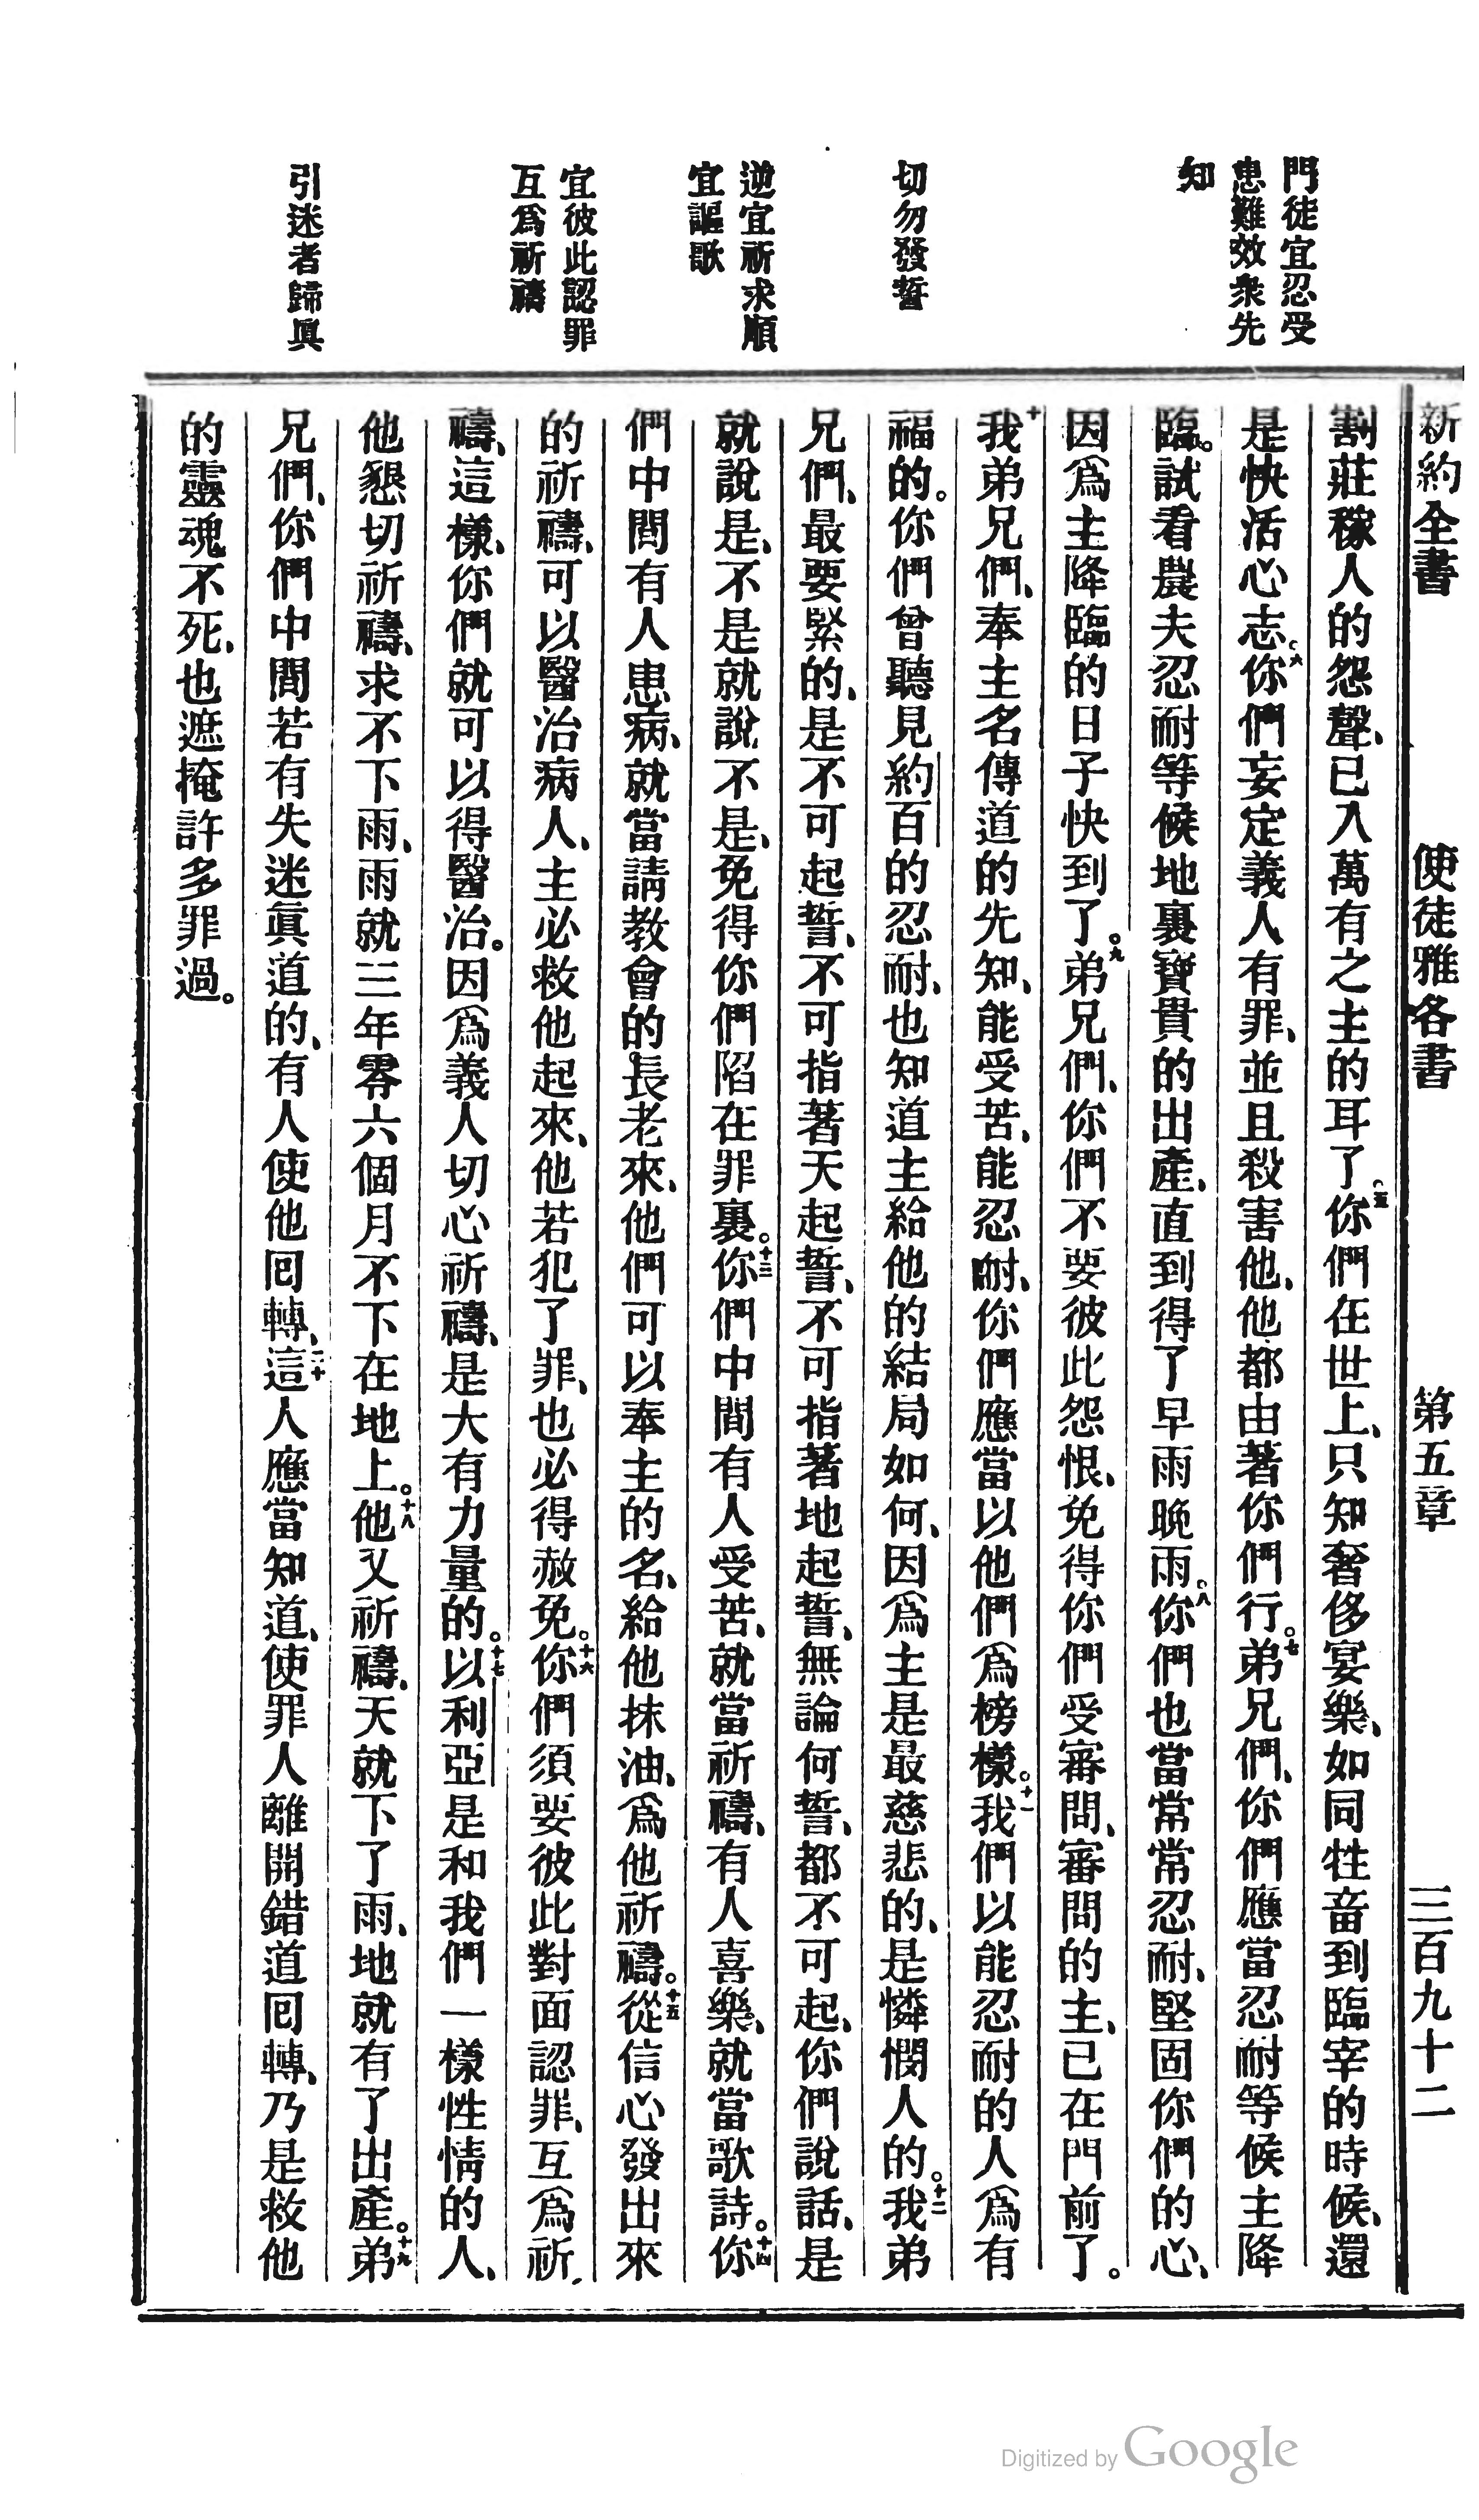 新約全書　使徒雅各書　第五章　三百九十二
門徒宜忍受
患難效衆先
知
切勿發誓
逆宜祈求順
宜謳歌
宜彼此認罪
互爲祈禱
引迷者歸眞
割莊稼人的怨聲、已入萬有之主的耳了。五你們在世上、只知奢侈宴樂、如同牲畜到臨宰的時候、還
是快活心志。六你們妄定義人有罪、並且殺害他、他都由著你們行。七弟兄們、你們應當忍耐等候主降
臨。試看農夫忍耐等候地裏寶貴的出產、直到得了早雨晚雨。八你們也當常常忍耐、堅固你們的心、
因爲主降臨的日子快到了。九弟兄們、你們不要彼此怨恨、免得你們受審問、審問的主、已在門前了。
十我弟兄們、奉主名傳道的先知、能受苦、能忍耐、你們應當以他們爲榜樣。十一我們以能忍耐的人爲有
福的。你們曾聽見約百的忍耐、也知道主給他的結局如何、因爲主是最慈悲的、是憐憫人的。十二我弟
兄們、最要緊的、是不可起誓、不可指著天起誓、不可指著地起誓、無論何誓、都不可起、你們說話、是
就說是、不是就說不是、免得你們陷在罪裏。十三你們中間有人受苦、就當祈禱、有人喜樂、就當歌詩。十四你
們中間有人患病、就當請教會的長老來、他們可以奉主的名、給他抹油、爲他祈禱。十五從信心發出來
的祈禱、可以醫治病人、主必救他起來、他若犯了罪、也必得赦免。十六你們須要彼此對面認罪、互爲祈
禱、這樣、你們就可以得醫治。因爲義人切心祈禱、是大有力量的。十七以利亞是和我們一樣性情的人、
他懇切祈禱、求不下雨、雨就三年零六個月不下在地上。十八他又祈禱、天就下了雨、地就有了出產。十九弟
兄們、你們中間若有失迷眞道的、有人使他回轉、二十這人應當知道、使罪人離開錯道回轉、乃是救他
的靈魂不死、也遮掩許多罪過。
Digitized by Google